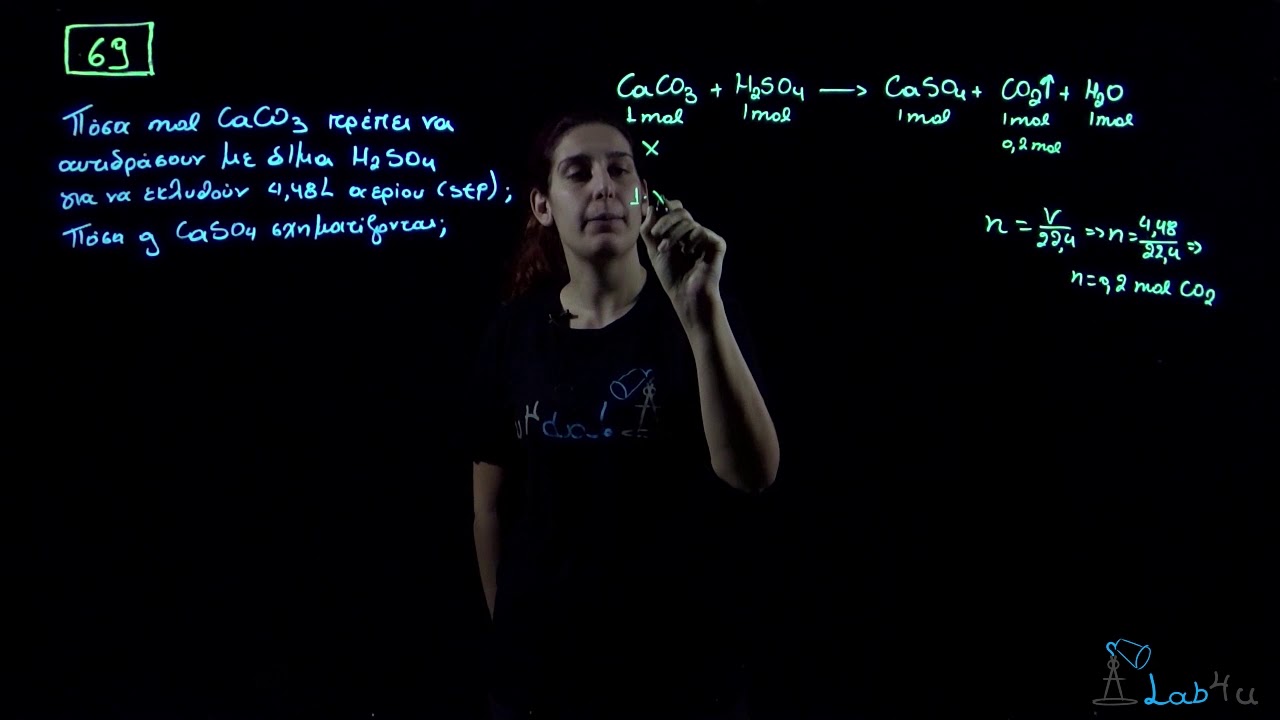 69
Πόσα mol CaCO3 πρέπει να
αντιδράσουν με δ/μα H2SO4
για να εκλυθούν 4,48L αερίου (STP);
Πόσα g CaSO4 σχηματίζονται;
CaCO3 + H2SO4 → CaSO4 + CO2↑ + H2O
1mol 1mol 1mol 1mol 1mol
x 0,2mol
1·x
n = V/22,4 => n = 4,48/22,4 =>
n=0,2 mol CO2
Lab4u